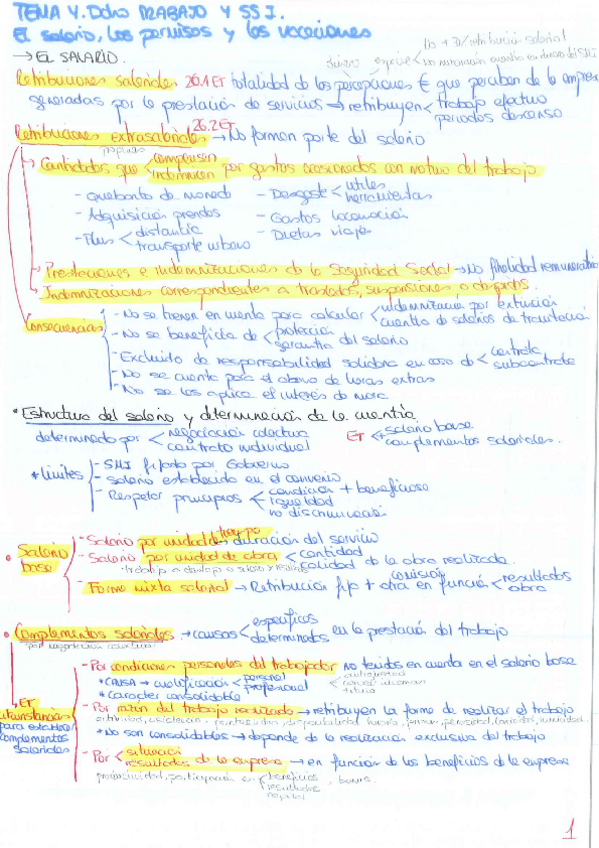 TEMA 4. Dcho TRABAJO Y SS I.
El salario, los permisos y las vacaciones
→ EL SALARIO.
Retribuciones salariales 26.1 ET totalidad de las percepciones € que perciben de la empresa
generadas por la prestación de servicios → retribuyen < trabajo efectivo
periodos descanso
Retribuciones extrasalariales 26.2 ET → No forman parte del salario
→ Cantidades que < compensen
indemnicen por gastos ocasionados con motivo del trabajo
- Quebranto de moneda - Desgaste < útiles
herramientas
- Adquisición prendas - Gastos locomoción
- Plus < distancia - Dietas viaje
transporte urbano
→ Prestaciones e indemnizaciones de la Seguridad Social → No finalidad remuneratoria
→ Indemnizaciones correspondientes a traslados, suspensiones o despidos.
Consecuencias
- No se tienen en cuenta para calcular < indemnización por extinción
cuantía de salarios de tramitación
- No se beneficia de < protección
garantía del salario
- Excluido de responsabilidad solidaria en caso de < contrata
subcontrata
- No se cuenta para el abono de horas extras
- No se les aplica el interés de mora
* Estructura del salario y determinación de la cuantía
determinado por < negociación colectiva
contrato individual ET < + salario base
complementos salariales.
* límites
- SMI fijado por Gobierno
- salario establecido en el convenio
- Respetar principios < condición + beneficiosa
igualdad
no discriminación
• Salario base
- Salario por unidad de tiempo duración del servicio
- Salario por unidad de obra < cantidad
calidad de la obra realizada
- Forma mixta salarial → Retribución fija + otra en función < resultados
obra
comisión
• Complementos salariales → causas < específicas
determinadas en la prestación del trabajo
por negociación colectiva
→ ET circunstancias para establecer complementos salariales
- Por condiciones personales del trabajador no tenidas en cuenta en el salario base
* CAUSA → cualificación < personal
profesional
* caracter consolidable
- Por razón del trabajo realizado → retribuyen la forma de realizar el trabajo
* No son consolidables → depende de la realización exclusiva del trabajo
- Por < situación
resultados de la empresa → en función de los beneficios de la empresa
productividad, participación en < beneficios, bonus.
resultados
capital
1